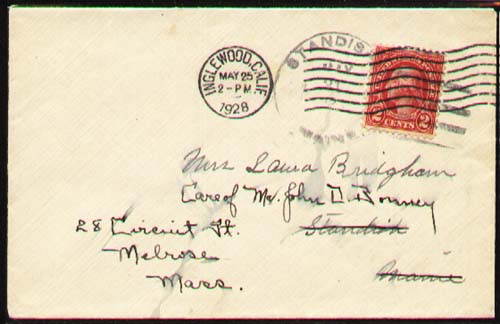 INGLEWOOD, CALIF.
MAY 25
2-PM
1928
STANDIS
2 CENTS 2
Mrs Laura Bridgham
Care of Mr. John D. Bonney
28 Circuit St.
Standish
Melrose
Maine
Mass.